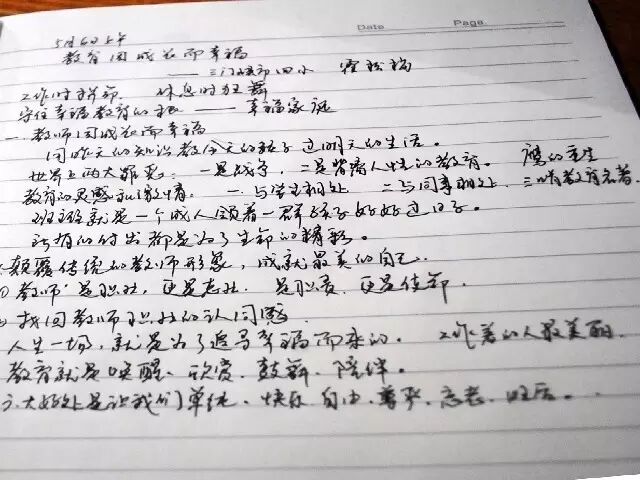 Date Page.
5月6日上午
教育因成长而幸福
——三门峡市四小
工作时拼命 休息时狂舞
守住幸福教育的根——幸福家谈
一、教师因成长而幸福
用昨天的知识教今天的孩子过明天的生活。
世界上两大罪恶:一是战争,二是背离人性的教育。 鹰的重生
教育的灵感和激情。一、与学生相处 二、与同事相处 三、啃教育名著
班级就是一个成人领着一群孩子好好过日子。
所有的付出都是为了生命的精彩。
颠覆传统的教师形象,成就最美的自己
① 教师是职业,更是志业 是职责,更是使命
找回教师职业的认同感
人生一场,就是为了追寻幸福而来的。 工作着的人最美丽
教育就是唤醒、欣赏、鼓舞、陪伴。
大好处是让我们单纯、快乐、自由、尊严